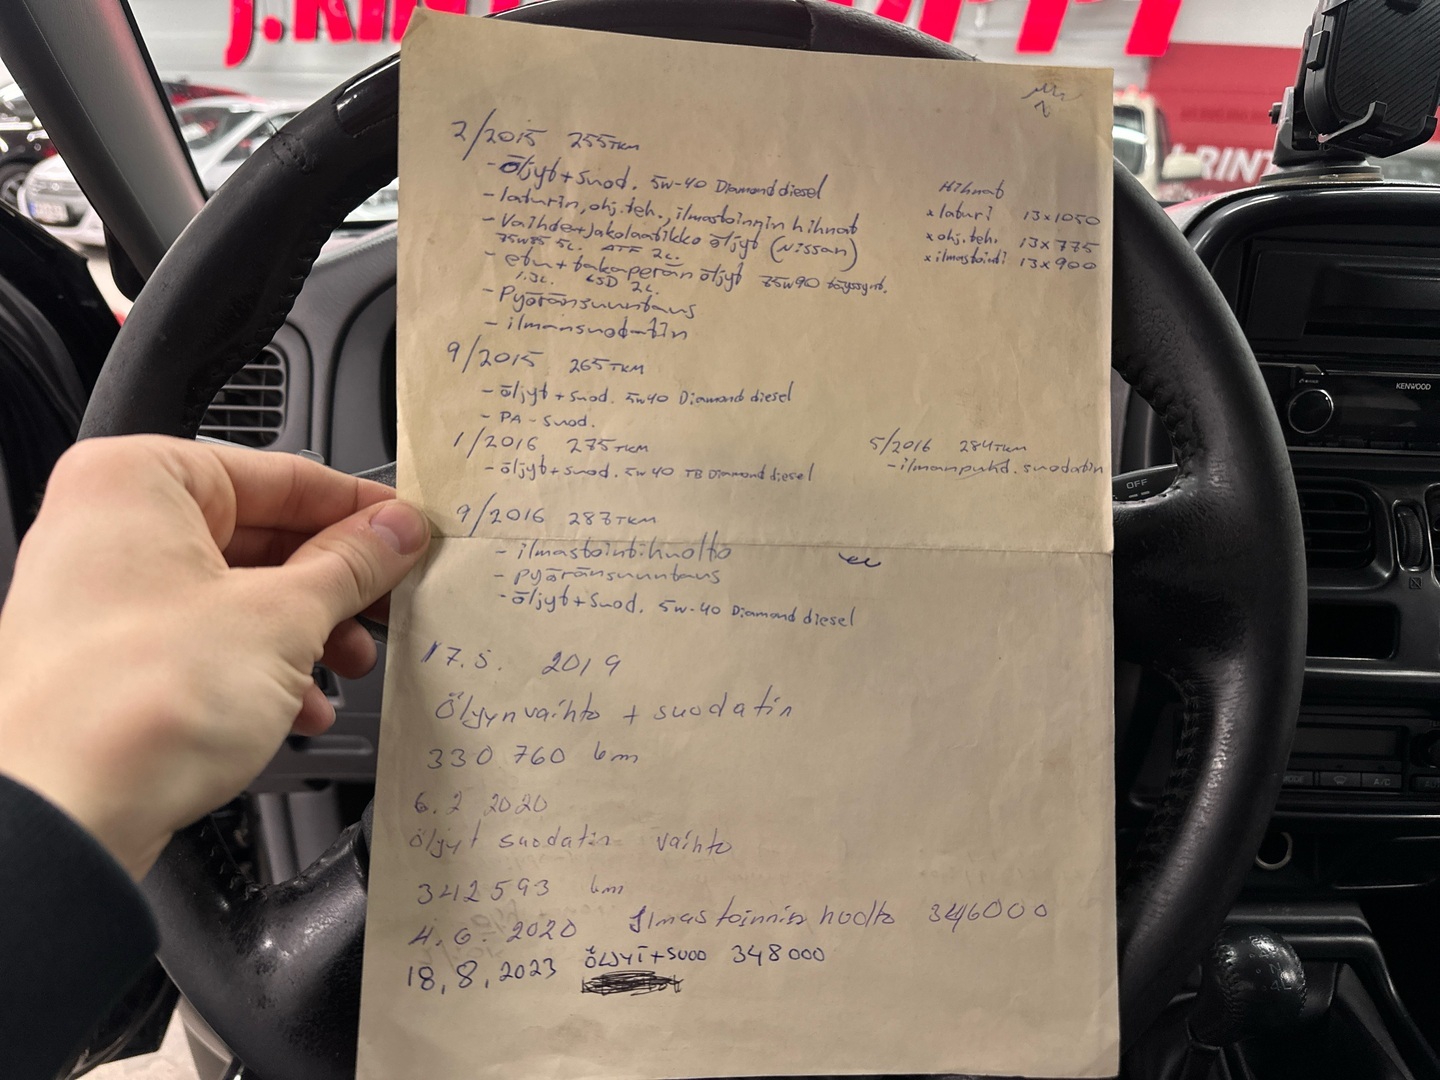 2/2015 255TKM
- öljyt+suod. 5w-40 Diamond diesel
- laturin, ohj.teh., ilmastoinnin hihnat
- Vaihde+jakolaatikko öljyt (Nissan)
75W85 5L. ATF 2L.
- etu+takaperän öljyt 75w90 täyssynt.
1.3L. LSD 2L.
- Pyöränsuuntaus
- ilmansuodatin
Hihnat
x laturi 13x1050
x ohj.teh. 13x775
x ilmastointi 13x900
9/2015 265TKM
- öljyt+suod. 5w40 Diamond diesel
- PA-suod.
1/2016 275TKM
- öljyt+suod. 5w40 TB Diamond diesel
5/2016 284TKM
- ilmanpuhd. suodatin
9/2016 287TKM
- ilmastointihuolto
- pyöränsuuntaus
- öljyt+suod. 5w-40 Diamond diesel
17.5. 2019
Öljynvaihto + suodatin
330 760 km
6.2 2020
öljyt suodatin vaihto
342593 km
4.6. 2020 Ilmastoinnin huolto 346000
18,8,2023 ÖLJYT+SUOD 348000
KENWOOD
OFF
A/C